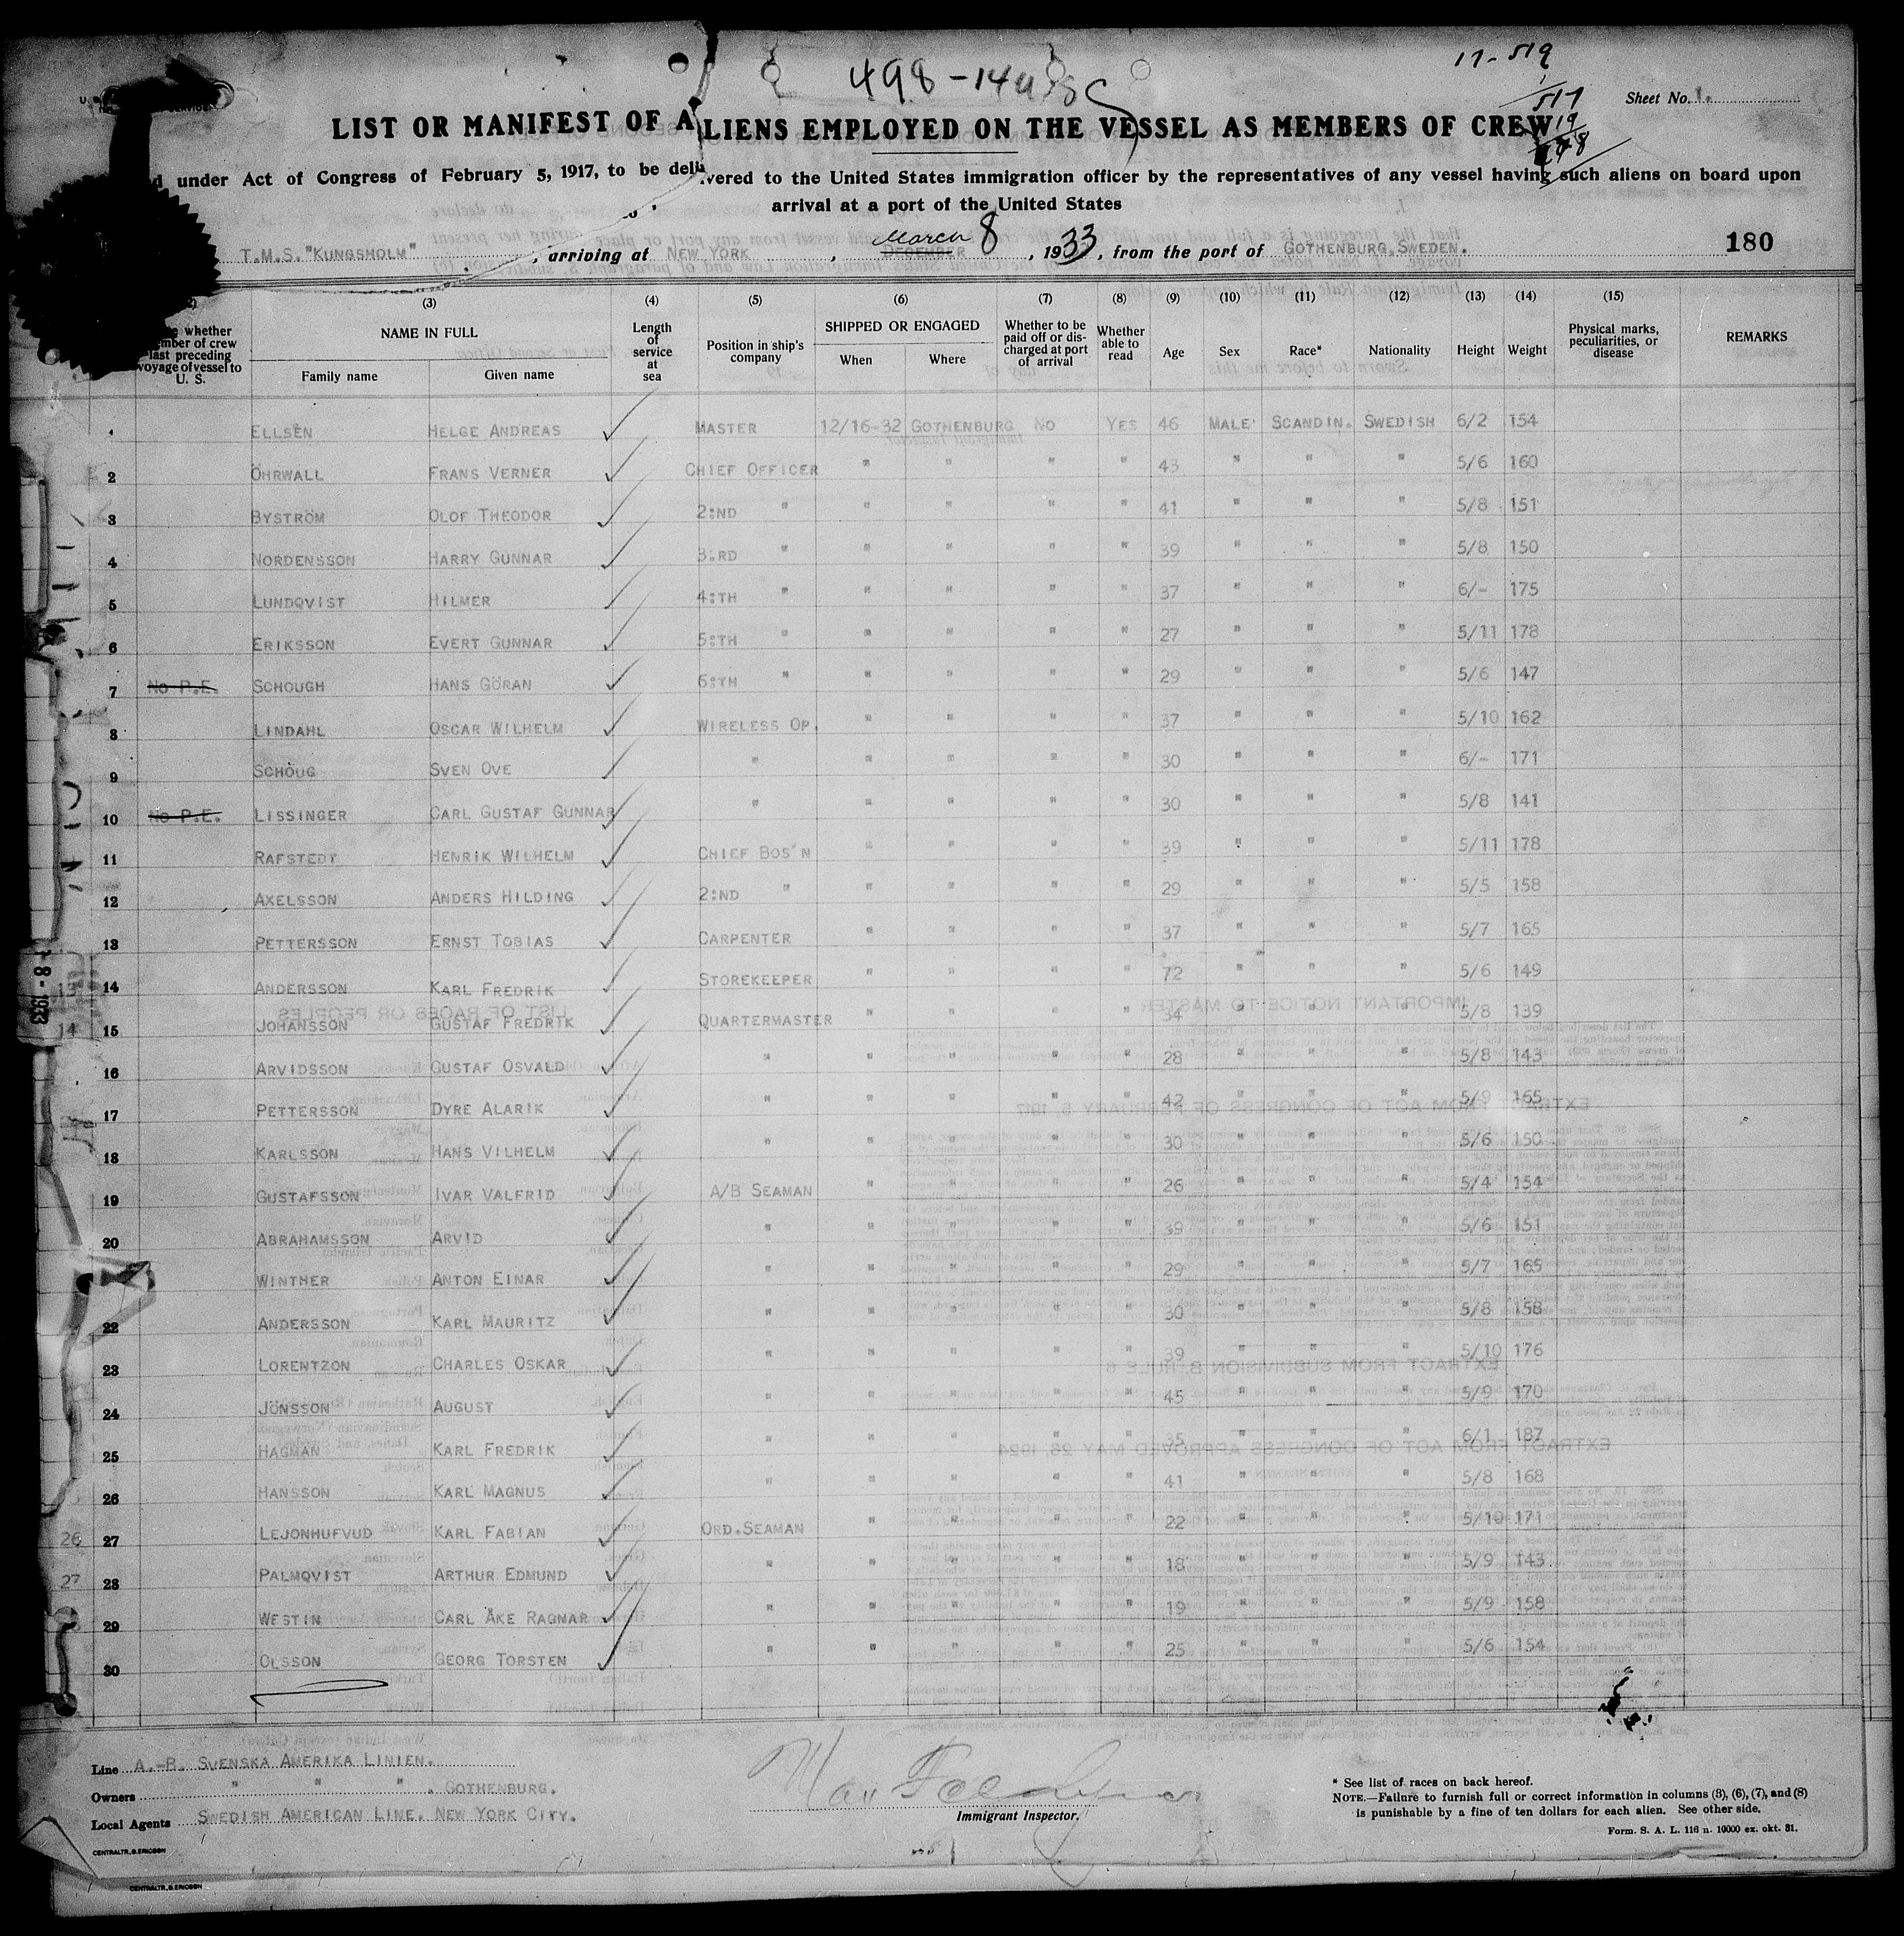 17-519
498-14
517
19
Sheet No. 1.
LIST OR MANIFEST OF ALIENS EMPLOYED ON THE VESSEL AS MEMBERS OF CREW
under Act of Congress of February 5, 1917, to be delivered to the United States immigration officer by the representatives of any vessel having such aliens on board upon
arrival at a port of the United States
T.M.S. "KUNGSHOLM", arriving at NEW YORK, DECEMBER March 8, 1933, from the port of GOTHENBURG, SWEDEN. 180
(3) (4) (5) (6) (7) (8) (9) (10) (11) (12) (13) (14) (15)
whether member of crew last preceding voyage of vessel to U. S. NAME IN FULL Family name Given name Length of service at sea Position in ship's company SHIPPED OR ENGAGED When Where Whether to be paid off or discharged at port of arrival Whether able to read Age Sex Race* Nationality Height Weight Physical marks, peculiarities, or disease REMARKS
ELLSÉN HELGE ANDREAS ✓ MASTER 12/16-32 GOTHENBURG NO YES 46 MALE SCANDIN. SWEDISH 6/2 154
2 ÖHRWALL FRANS VERNER ✓ CHIEF OFFICER " " " " 43 " " " 5/6 160
3 BYSTRÖM OLOF THEODOR ✓ 2:ND " " " " " 41 " " " 5/8 151
4 NORDENSSON HARRY GUNNAR ✓ 3:RD " " " " " 39 " " " 5/8 150
5 LUNDQVIST HILMER ✓ 4:TH " " " " " 37 " " " 6/- 175
6 ERIKSSON EVERT GUNNAR ✓ 5:TH " " " " " 27 " " " 5/11 178
7 No P.E. SCHOUGH HANS GÖRAN ✓ 6:TH " " " " " 29 " " " 5/6 147
8 LINDAHL OSCAR WILHELM ✓ WIRELESS OP. " " " " 37 " " " 5/10 162
9 SCHÖUG SVEN OVE ✓ " " " " " 30 " " " 6/- 171
10 No P.E. LISSINGER CARL GUSTAF GUNNAR ✓ " " " " " 30 " " " 5/8 141
11 RAFSTEDT HENRIK WILHELM ✓ CHIEF BOS'N " " " " 39 " " " 5/11 178
12 AXELSSON ANDERS HILDING ✓ 2:ND " " " " " 29 " " " 5/5 158
13 PETTERSSON ERNST TOBIAS ✓ CARPENTER " " " " 37 " " " 5/7 165
14 ANDERSSON KARL FREDRIK ✓ STOREKEEPER " " " " 72 " " " 5/6 149
15 JOHANSSON GUSTAF FREDRIK ✓ QUARTERMASTER " " " " 34 " " " 5/8 139
16 ARVIDSSON GUSTAF OSVALD ✓ " " " " " 28 " " " 5/8 143
17 PETTERSSON DYRE ALARIK ✓ " " " " " 42 " " " 5/9 165
18 KARLSSON HANS VILHELM ✓ " " " " " 30 " " " 5/6 150
19 GUSTAFSSON IVAR VALFRID ✓ A/B SEAMAN " " " " 26 " " " 5/4 154
20 ABRAHAMSSON ARVID ✓ " " " " " 39 " " " 5/6 151
WINTHER ANTON EINAR ✓ " " " " " 29 " " " 5/7 165
22 ANDERSSON KARL MAURITZ ✓ " " " " " 30 " " " 5/8 158
23 LORENTZON CHARLES OSKAR ✓ " " " " " 39 " " " 5/10 176
24 JÖNSSON AUGUST ✓ " " " " " 45 " " " 5/9 170
25 HAGMAN KARL FREDRIK ✓ " " " " " 35 " " " 6/1 187
26 HANSSON KARL MAGNUS ✓ " " " " " 41 " " " 5/8 168
27 LEJONHUFVUD KARL FABIAN ✓ ORD. SEAMAN " " " " 22 " " " 5/10 171
28 PALMQVIST ARTHUR EDMUND ✓ " " " " " 18 " " " 5/9 143
29 WESTIN CARL ÅKE RAGNAR ✓ " " " " " 19 " " " 5/9 158
30 OLSSON GEORG TORSTEN ✓ " " " " " 25 " " " 5/6 154
Line A.-B. SVENSKA AMERIKA LINIEN.
Owners " " " . GOTHENBURG.
Local Agents SWEDISH AMERICAN LINE. NEW YORK CITY.
Immigrant Inspector.
* See list of races on back hereof.
NOTE.—Failure to furnish full or correct information in columns (3), (6), (7), and (8)
is punishable by a fine of ten dollars for each alien. See other side.
Form. S. A. L. 116 n. 10000 ex. okt. 31.
CENTRALTR., G. ERICSON
CENTRALTR., G. ERICSON